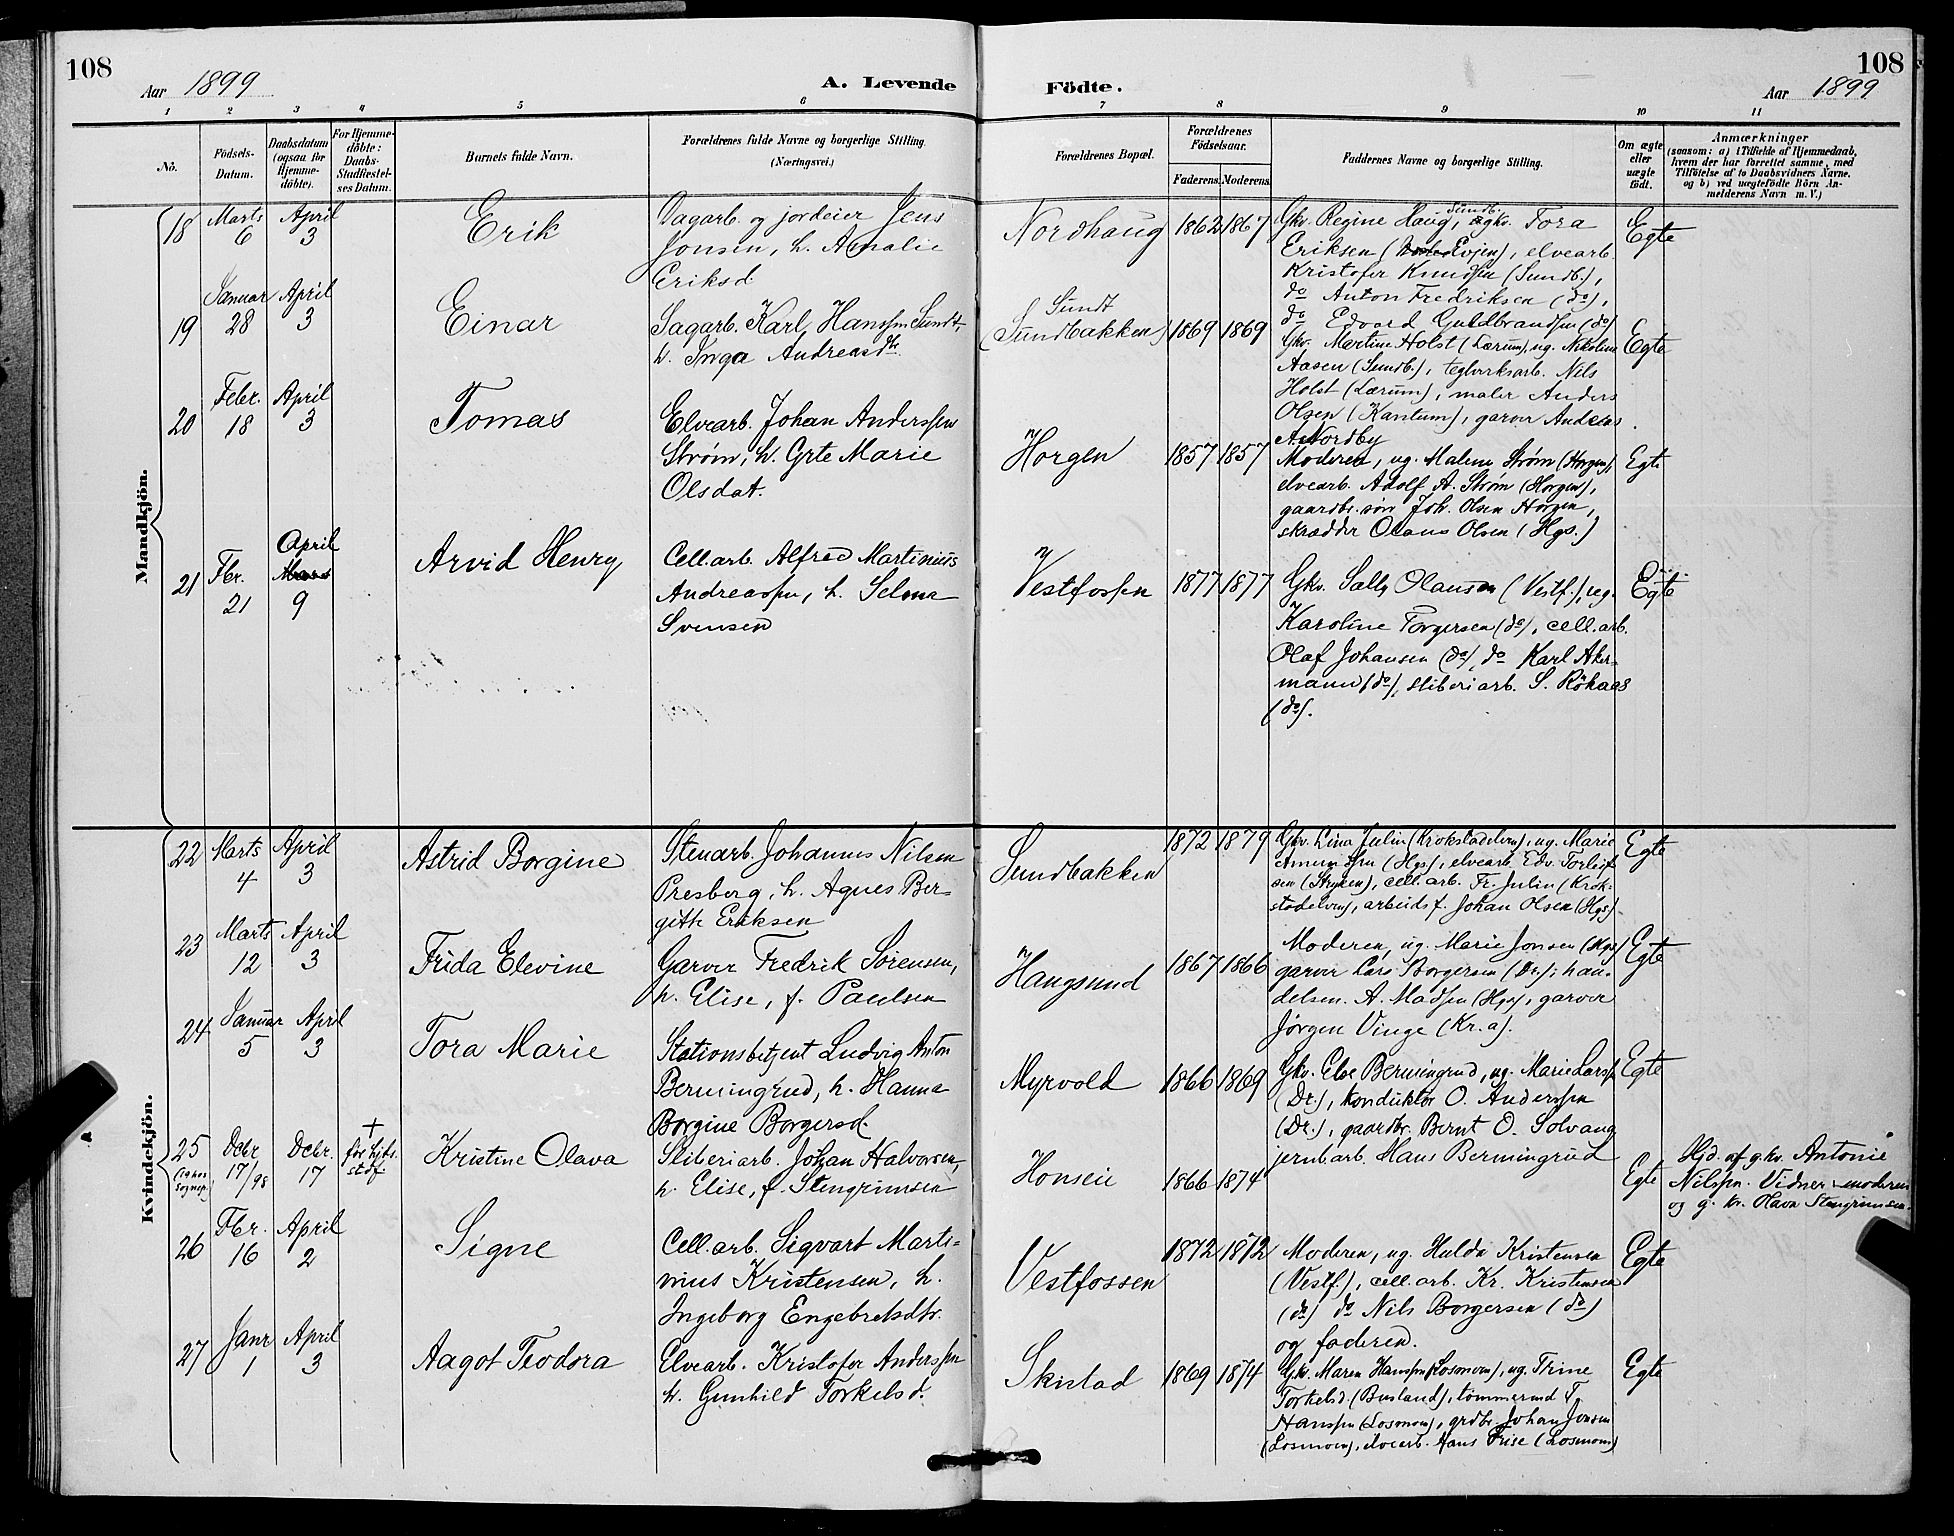 108
Aar 1899
A. Levende
Födte.
Aar 1899
108
1 2 3 4 5 6 7 8 9 10 11
No.
Födsels-
Datum.
Daabsdatum
(ogsaa for
Hjemme-
döbte).
For Hjemme-
döbte:
Daabs-
Stadfæstel-
ses Datum.
Barnets fulde Navn.
Forældrenes fulde Navne og borgerlige Stilling.
(Næringsvei.)
Forældrenes Bopæl.
Forældrenes
Födselsaar.
Faderens. Moderens.
Faddernes Navne og borgerlige Stilling.
Om ægte
eller
uægte
födt.
Anmærkninger
(saasom: a) i Tilfælde af Hjemmedaab,
hvem der har forrettet samme, med
Tilföielse af to Daabsvidners Navne.
og b) ved uægtefödte Börn An-
melderens Navn m.V.)
Mandkjön.
18 Marts 6 April 3
Erik
Dagarb. og jordeier Jens
Jonsen, h. Amalie
Eriksd
Nordhaug 1862 1867
Gkv. Regine Haug, Sundb. gkv. Tora
Eriksen (Evjen), elvearb.
Kristofer Knudsen (Sundb.),
do Anton Fredriksen (do),
do Edvard Guldbrandsen (do)
Egte
19 Januar 28 April 3
Einar
Sagarb. Karl Hanssen Sundt
h. Inga Andreasdtr.
Sundt
(Sundbakken) 1869 1869
Gkv. Martine Holst (Lærum), ug. Nikoline
Aasen (Sundb.), teglverksarb. Nils
Holst (Lærum), maler Anders
Olsen (Kantum), garver Andreas
A. Nordby
Egte
20 Febr. 18 April 3
Tomas
Elvearb. Johan Anderssen
Strøm, h. Grte Marie
Olsdat.
Horgen 1857 1857
Moderen, ug. Malene Strøm (Horgen),
elvearb. Adolf A. Strøm (Horgen),
gaardbr. søn Joh. Olsen Horgen,
skrædder Olaus Olsen (Hgs.)
Egte
21 Fbr. 21 April 9
Arvid Henry
Cell.arb. Alfred Martinius
Andreassen, h. Selma
Svensen
Vestfossen 1877 1877
Gkv. Sally Olausen (Vestf.), ug.
Karoline Torgersen (do), cell.arb.
Olaf Johansen (do), do Karl Aker-
mann (do), sliberiarb. S. Rökaas
(do).
Egte
Kvindekjön.
22 Marts 4 April 3
Astrid Borgine
Stenarb. Johannes Nilsen
Presberg, h. Agnes Ber-
gitte Eriksen
Sundbakken 1872 1879
Gkv. Lina Julin (Krokstadelven), ug. Marie
Amundsen (Hgs), elvearb. Edv. Torleif-
sen (Stryken), cell.arb. Fr. Julin (Krok-
stadelven), arbeidsf. Johan Olsen (Hgs).
Egte
23 Marts 12 April 3
Frida Elevine
Garver Fredrik Sørensen,
h. Elise, f. Paulsen
Haugsund 1867 1866
Moderen, ug. Marie Jonsen (Hgs)
garver Lars Borgersen (Dr.), han-
delsm. A. Madsen (Hgs), garver
Jørgen Vinge (Kr.a).
Egte
24 Januar 5 April 3
Tora Marie
Stationsbetjent Ludvig Anton
Bermingrud, h. Hanna
Borgine Borgersd.
Myrvold 1866 1869
Gkv. Else Bermingrud, ug. Marie Larssn
(Dr.), konduktør O. Anderssen
(Dr.), gaardbr. Bernt O. Solvang
jernb.arb. Hans Bermingrud
Egte
25 Debr 17/98 Debr. 17 +
før hjts.
stdf.
Kristine Olava
Sliberiarb. Johan Halvorsen,
h. Elise, f. Stengrimsen
Honseie 1866 1874
Egte
Hjd. af gkv. Antonie
Nilssn. Vidner moderen
og g. kv. Olava Stengrimsen.
26 Fbr. 16 April 2
Signe
Cell.arb. Sigvart Marti-
nius Kristensen, h.
Ingeborg Engebretsdtr.
Vestfossen 1872 1872
Moderen, ug. Hulda Kristensen
(Vestf.), cell.arb. Kr. Kristensen
(do) do Nils Borgersen (do)
og faderen.
Egte
27 Janr 1 April 3
Aagot Teodora
Elvearb. Kristofer Anderssen
h. Gunhild Torkelsd.
Skistad 1869 1874
Gkv. Maren Hanssen (Losmoen), ug. Trine
Torkelsd. (Busland), tømmermd T.
Hanssen (Losmoen), grdbr. Johan Jonsen
(Losmoen), elvearb. Hans Frise (Losmoen)
Egte